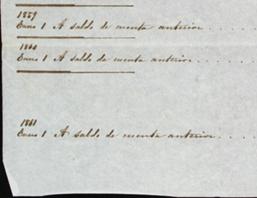 1859
Enero 1 A saldo de cuenta anterior . . . .
1860
Enero 1 A saldo de cuenta anterior . . . .
1861
Enero 1 A saldo de cuenta anterior . . . .